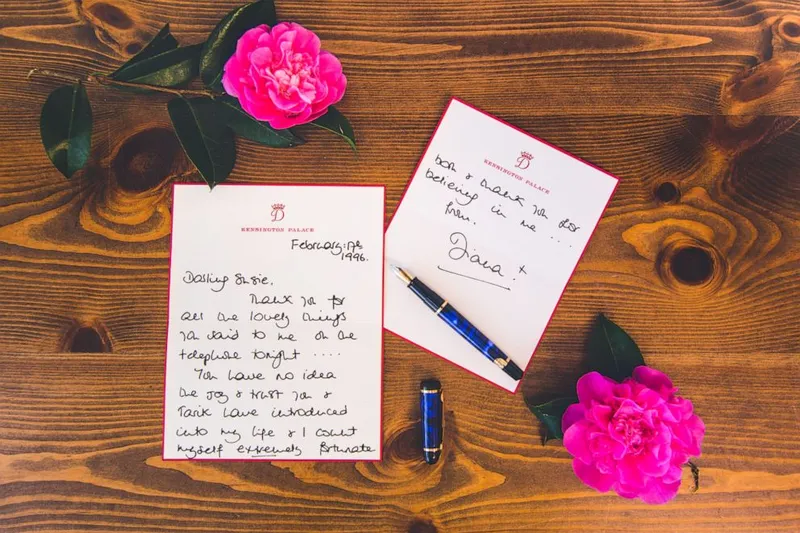 D
KENSINGTON PALACE
February:17th
1996.
Darling Susie,
Thank you for
all the lovely things
you said to me on the
telephone tonight ....
You have no idea
the joy & trust you &
Tarik have introduced
into my life & I count
myself extremely fortunate
D
KENSINGTON PALACE
& thank you for
believing in me ....
from,
Diana x